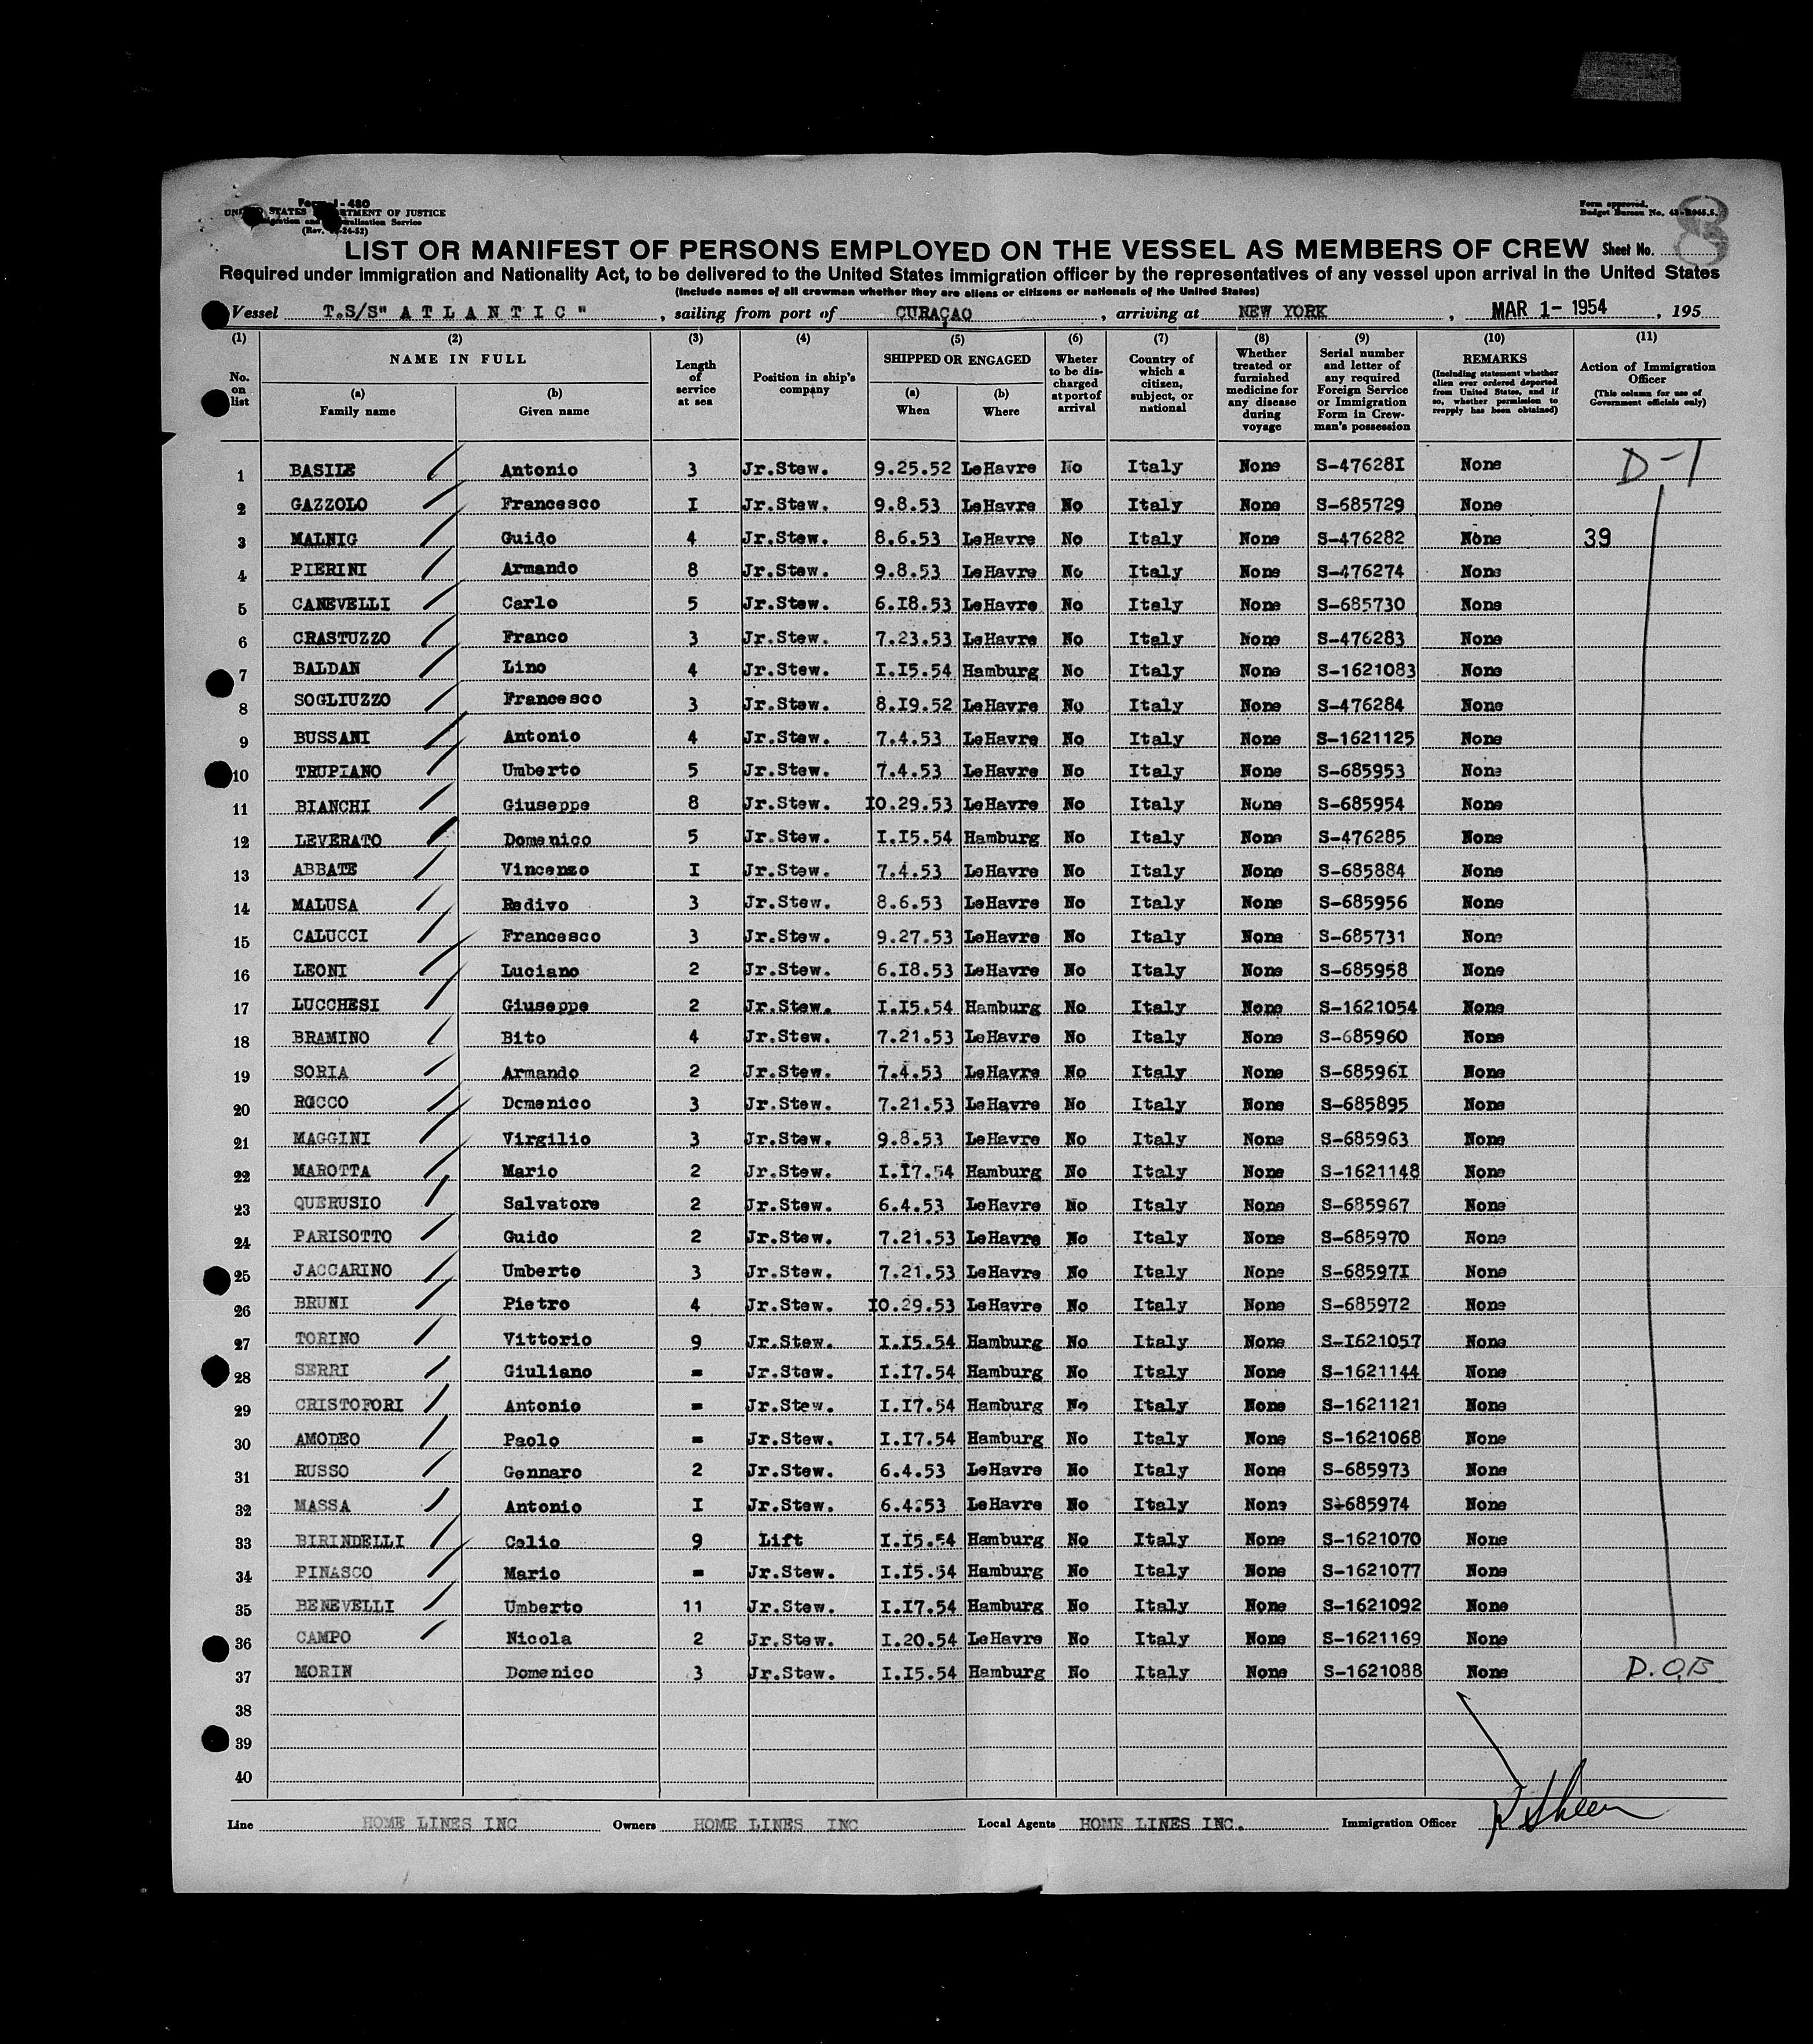 Form I-480
UNITED STATES DEPARTMENT OF JUSTICE
Immigration and Naturalization Service
(Rev. -24-52)
Form approved.
Budget Bureau No. 43-R065.5.
LIST OR MANIFEST OF PERSONS EMPLOYED ON THE VESSEL AS MEMBERS OF CREW Sheet No. 8
Required under immigration and Nationality Act, to be delivered to the United States immigration officer by the representatives of any vessel upon arrival in the United States
(Include names of all crewman whether they are aliens or citizens or nationals of the United States)
Vessel T.S/S" A T L A N T I C " , sailing from port of CURAÇAO , arriving at NEW YORK , MAR 1- 1954 , 195
(1) (2) (3) (4) (5) (6) (7) (8) (9) (10) (11)
No. on list
NAME IN FULL
(a) Family name
(b) Given name
Length of service at sea
Position in ship's company
SHIPPED OR ENGAGED
(a) When
(b) Where
Wheter to be discharged at port of arrival
Country of which a citizen, subject, or national
Whether treated or furnished medicine for any disease during voyage
Serial number and letter of any required Foreign Service or Immigration Form in Crewman's possession
REMARKS
(Including statement whether alien ever ordered deported from United States, and if so, whether permission to reapply has been obtained)
Action of Immigration Officer
(This column for use of Government officials only)
1 BASILE Antonio 3 Jr.Stew. 9.25.52 LeHavre No Italy None S-47628I None D-1
2 GAZZOLO Francesco I Jr.Stew. 9.8.53 LeHavre No Italy None S-685729 None
3 MALNIG Guido 4 Jr.Stew. 8.6.53 LeHavre No Italy None S-476282 None 39
4 PIERINI Armando 8 Jr.Stew. 9.8.53 LeHavre No Italy None S-476274 None
5 CANEVELLI Carlo 5 Jr.Stew. 6.I8.53 LeHavre No Italy None S-685730 None
6 CRASTUZZO Franco 3 Jr.Stew. 7.23.53 LeHavre No Italy None S-476283 None
7 BALDAN Lino 4 Jr.Stew. I.I5.54 Hamburg No Italy None S-1621083 None
8 SOGLIUZZO Francesco 3 Jr.Stew. 8.I9.52 LeHavre No Italy None S-476284 None
9 BUSSANI Antonio 4 Jr.Stew. 7.4.53 LeHavre No Italy None S-1621125 None
10 TRUPIANO Umberto 5 Jr.Stew. 7.4.53 LeHavre No Italy None S-685953 None
11 BIANCHI Giuseppe 8 Jr.Stew. I0.29.53 LeHavre No Italy None S-685954 None
12 LEVERATO Domenico 5 Jr.Stew. I.I5.54 Hamburg No Italy None S-476285 None
13 ABBATE Vincenzo I Jr.Stew. 7.4.53 LeHavre No Italy None S-685884 None
14 MALUSA Redivo 3 Jr.Stew. 8.6.53 LeHavre No Italy None S-685956 None
15 CALUCCI Francesco 3 Jr.Stew. 9.27.53 LeHavre No Italy None S-685731 None
16 LEONI Luciano 2 Jr.Stew. 6.I8.53 LeHavre No Italy None S-685958 None
17 LUCCHESI Giuseppe 2 Jr.Stew. I.I5.54 Hamburg No Italy None S-1621054 None
18 BRAMINO Bito 4 Jr.Stew. 7.21.53 LeHavre No Italy None S-685960 None
19 SORIA Armando 2 Jr.Stew. 7.4.53 LeHavre No Italy None S-68596I None
20 ROCCO Domenico 3 Jr.Stew. 7.21.53 LeHavre No Italy None S-685895 None
21 MAGGINI Virgilio 3 Jr.Stew. 9.8.53 LeHavre No Italy None S-685963 None
22 MAROTTA Mario 2 Jr.Stew. I.I7.54 Hamburg No Italy None S-1621148 None
23 QUERUSIO Salvatore 2 Jr.Stew. 6.4.53 LeHavre No Italy None S-685967 None
24 PARISOTTO Guido 2 Jr.Stew. 7.21.53 LeHavre No Italy None S-685970 None
25 JACCARINO Umberto 3 Jr.Stew. 7.21.53 LeHavre No Italy None S-68597I None
26 BRUNI Pietro 4 Jr.Stew. I0.29.53 LeHavre No Italy None S-685972 None
27 TORINO Vittorio 9 Jr.Stew. I.I5.54 Hamburg No Italy None S-I621057 None
28 SERRI Giuliano = Jr.Stew. I.I7.54 Hamburg No Italy None S-1621144 None
29 CRISTOFORI Antonio = Jr.Stew. I.I7.54 Hamburg No Italy None S-1621121 None
30 AMODEO Paolo = Jr.Stew. I.I7.54 Hamburg No Italy None S-1621068 None
31 RUSSO Gennaro 2 Jr.Stew. 6.4.53 LeHavre No Italy None S-685973 None
32 MASSA Antonio I Jr.Stew. 6.4.53 LeHavre No Italy None S-685974 None
33 BIRINDELLI Celio 9 Lift I.I5.54 Hamburg No Italy None S-1621070 None
34 PINASCO Mario = Jr.Stew. I.I5.54 Hamburg No Italy None S-1621077 None
35 BENEVELLI Umberto 11 Jr.Stew. I.I7.54 Hamburg No Italy None S-1621092 None
36 CAMPO Nicola 2 Jr.Stew. I.20.54 LeHavre No Italy None S-1621169 None
37 MORIN Domenico 3 Jr.Stew. I.I5.54 Hamburg No Italy None S-1621088 None D.O.B
38
39
40
Line HOME LINES INC Owners HOME LINES INC Local Agents HOME LINES INC. Immigration Officer